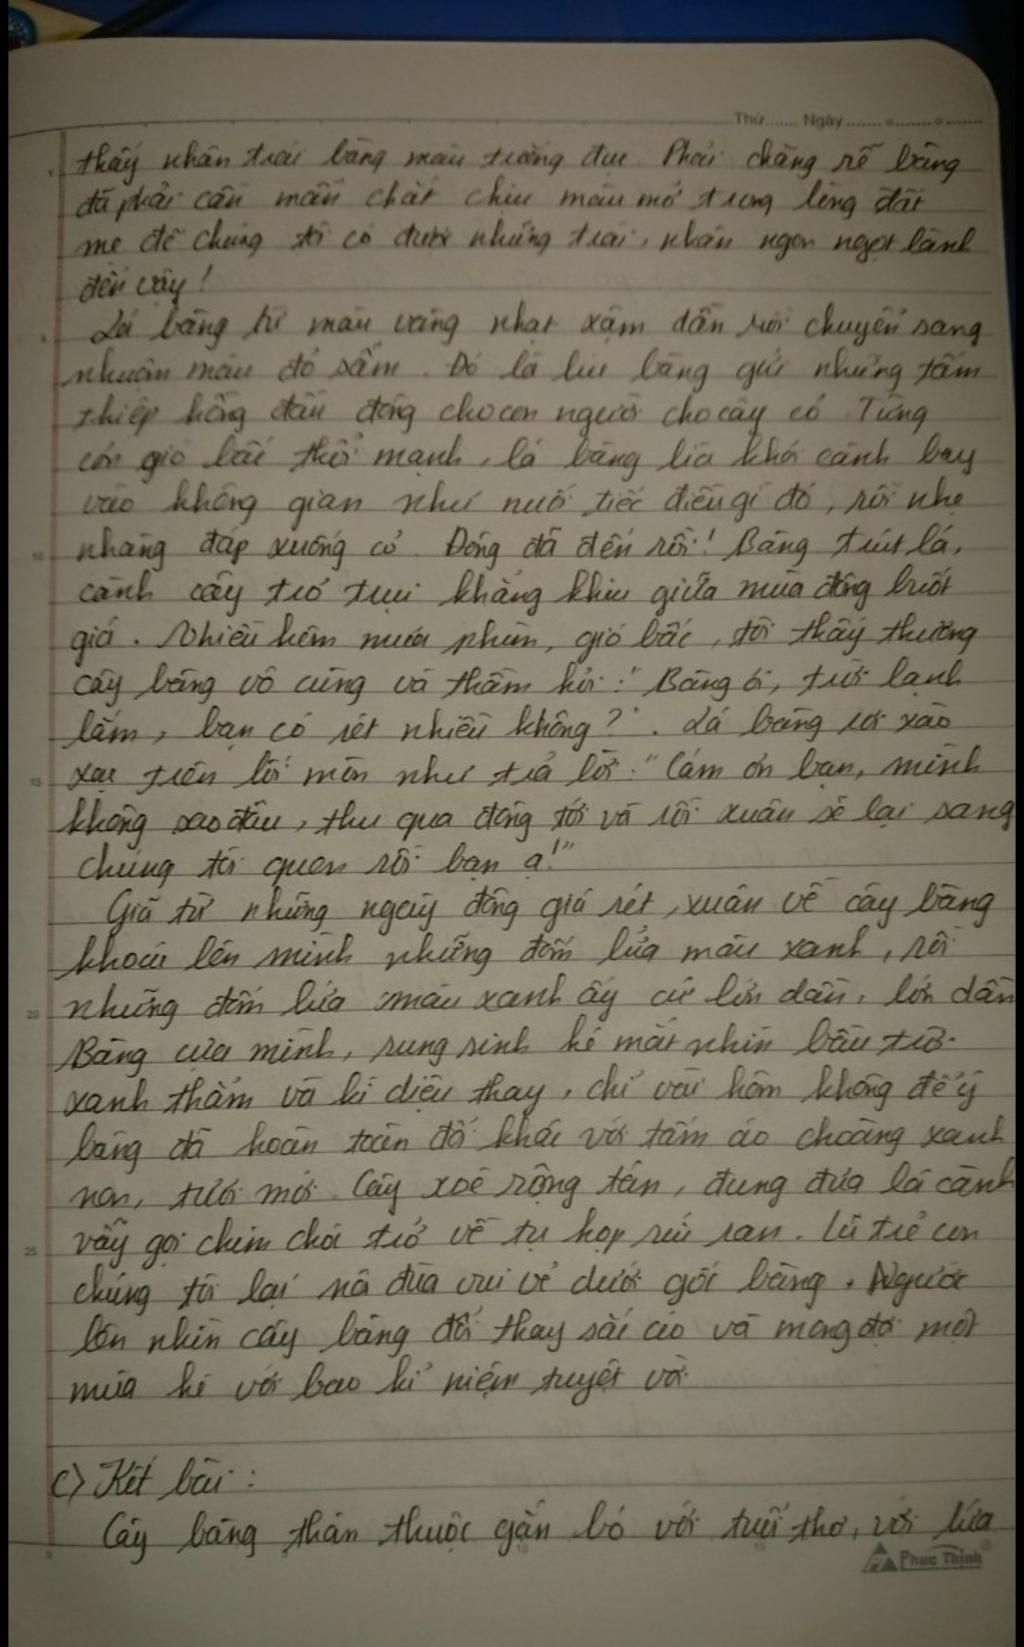 Thứ...... Ngày.......................
thấy nhân trái bàng màu trắng đục. Phải chăng rễ bàng
đã phải cần mẫn chắt chiu màu mỡ trong lòng đất
mẹ để chúng tôi có được những trái, nhân ngon ngọt lành
đến vậy!
Lá bàng từ màu vàng nhạt xậm dần rồi chuyển sang
nhuốm màu đỏ sẫm. Đó là lúc bàng gửi những tấm
thiệp hồng đầu đông cho con người cho cây cỏ. Từng
cơn gió bấc thổi mạnh, lá bàng lìa khỏi cành bay
vào không gian như nuối tiếc điều gì đó, rồi nhẹ
nhàng đáp xuống cỏ. Đông đã đến rồi! Bàng trút lá,
cành cây trơ trụi khẳng khiu giữa mùa đông buốt
giá. Nhiều hôm mưa phùn, gió bấc, tôi thấy thương
cây bàng vô cùng và thầm hỏi: "Bàng ơi, trời lạnh
lắm, bạn có rét nhiều không?". Lá bàng rơi xào
xạc trên lối mòn như trả lời: "Cám ơn bạn, mình
không sao đâu, thu qua đông tới và rồi xuân sẽ lại sang
chúng tôi quen rồi bạn ạ!"
Giã từ những ngày đông giá rét, xuân về cây bàng
khoác lên mình những đốm lửa màu xanh, rồi
những đốm lửa màu xanh ấy cứ lớn dần, lớn dần
Bàng cựa mình, rung rinh hé mắt nhìn bầu trời
xanh thẳm và kì diệu thay, chỉ vài hôm không để ý
bàng đã hoàn toàn đổi khác với tấm áo choàng xanh
non, tươi mới. Cây xoè rộng tán, đung đưa lá cành
vẫy gọi chim chóc trở về tụ họp ríu ran. Lũ trẻ con
chúng tôi lại nô đùa vui vẻ dưới gốc bàng. Người
lớn nhìn cây bàng đổi thay sắc áo và mong đợi một
mùa hè với bao kỉ niệm tuyệt vời
c) Kết bài:
Cây bàng thân thuộc gắn bó với tuổi thơ, với lứa
Phúc Thịnh